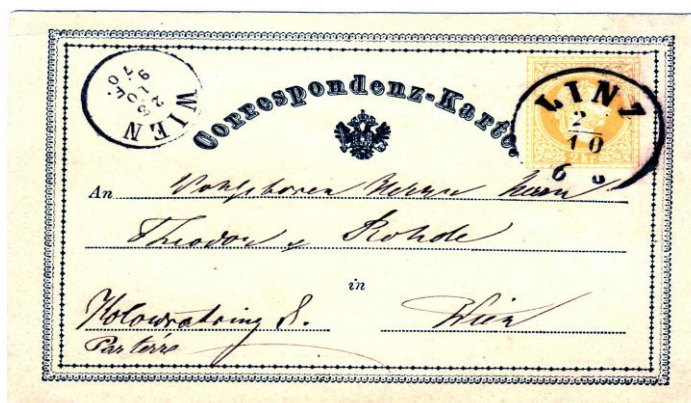 Correspondenz-Karte.
WIEN
LINZ
2
10
6
2 Kr.
An Wohlgeboren Herrn Herrn
Theodor Rohde
in
Kolowratring 8. Wien
Parterre